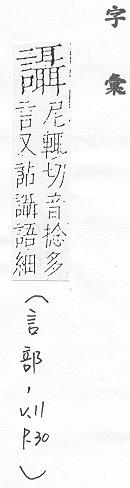 字彙
讘
尼輒切音捻多
言又詀讘語細
（言部，V.11
P.30）